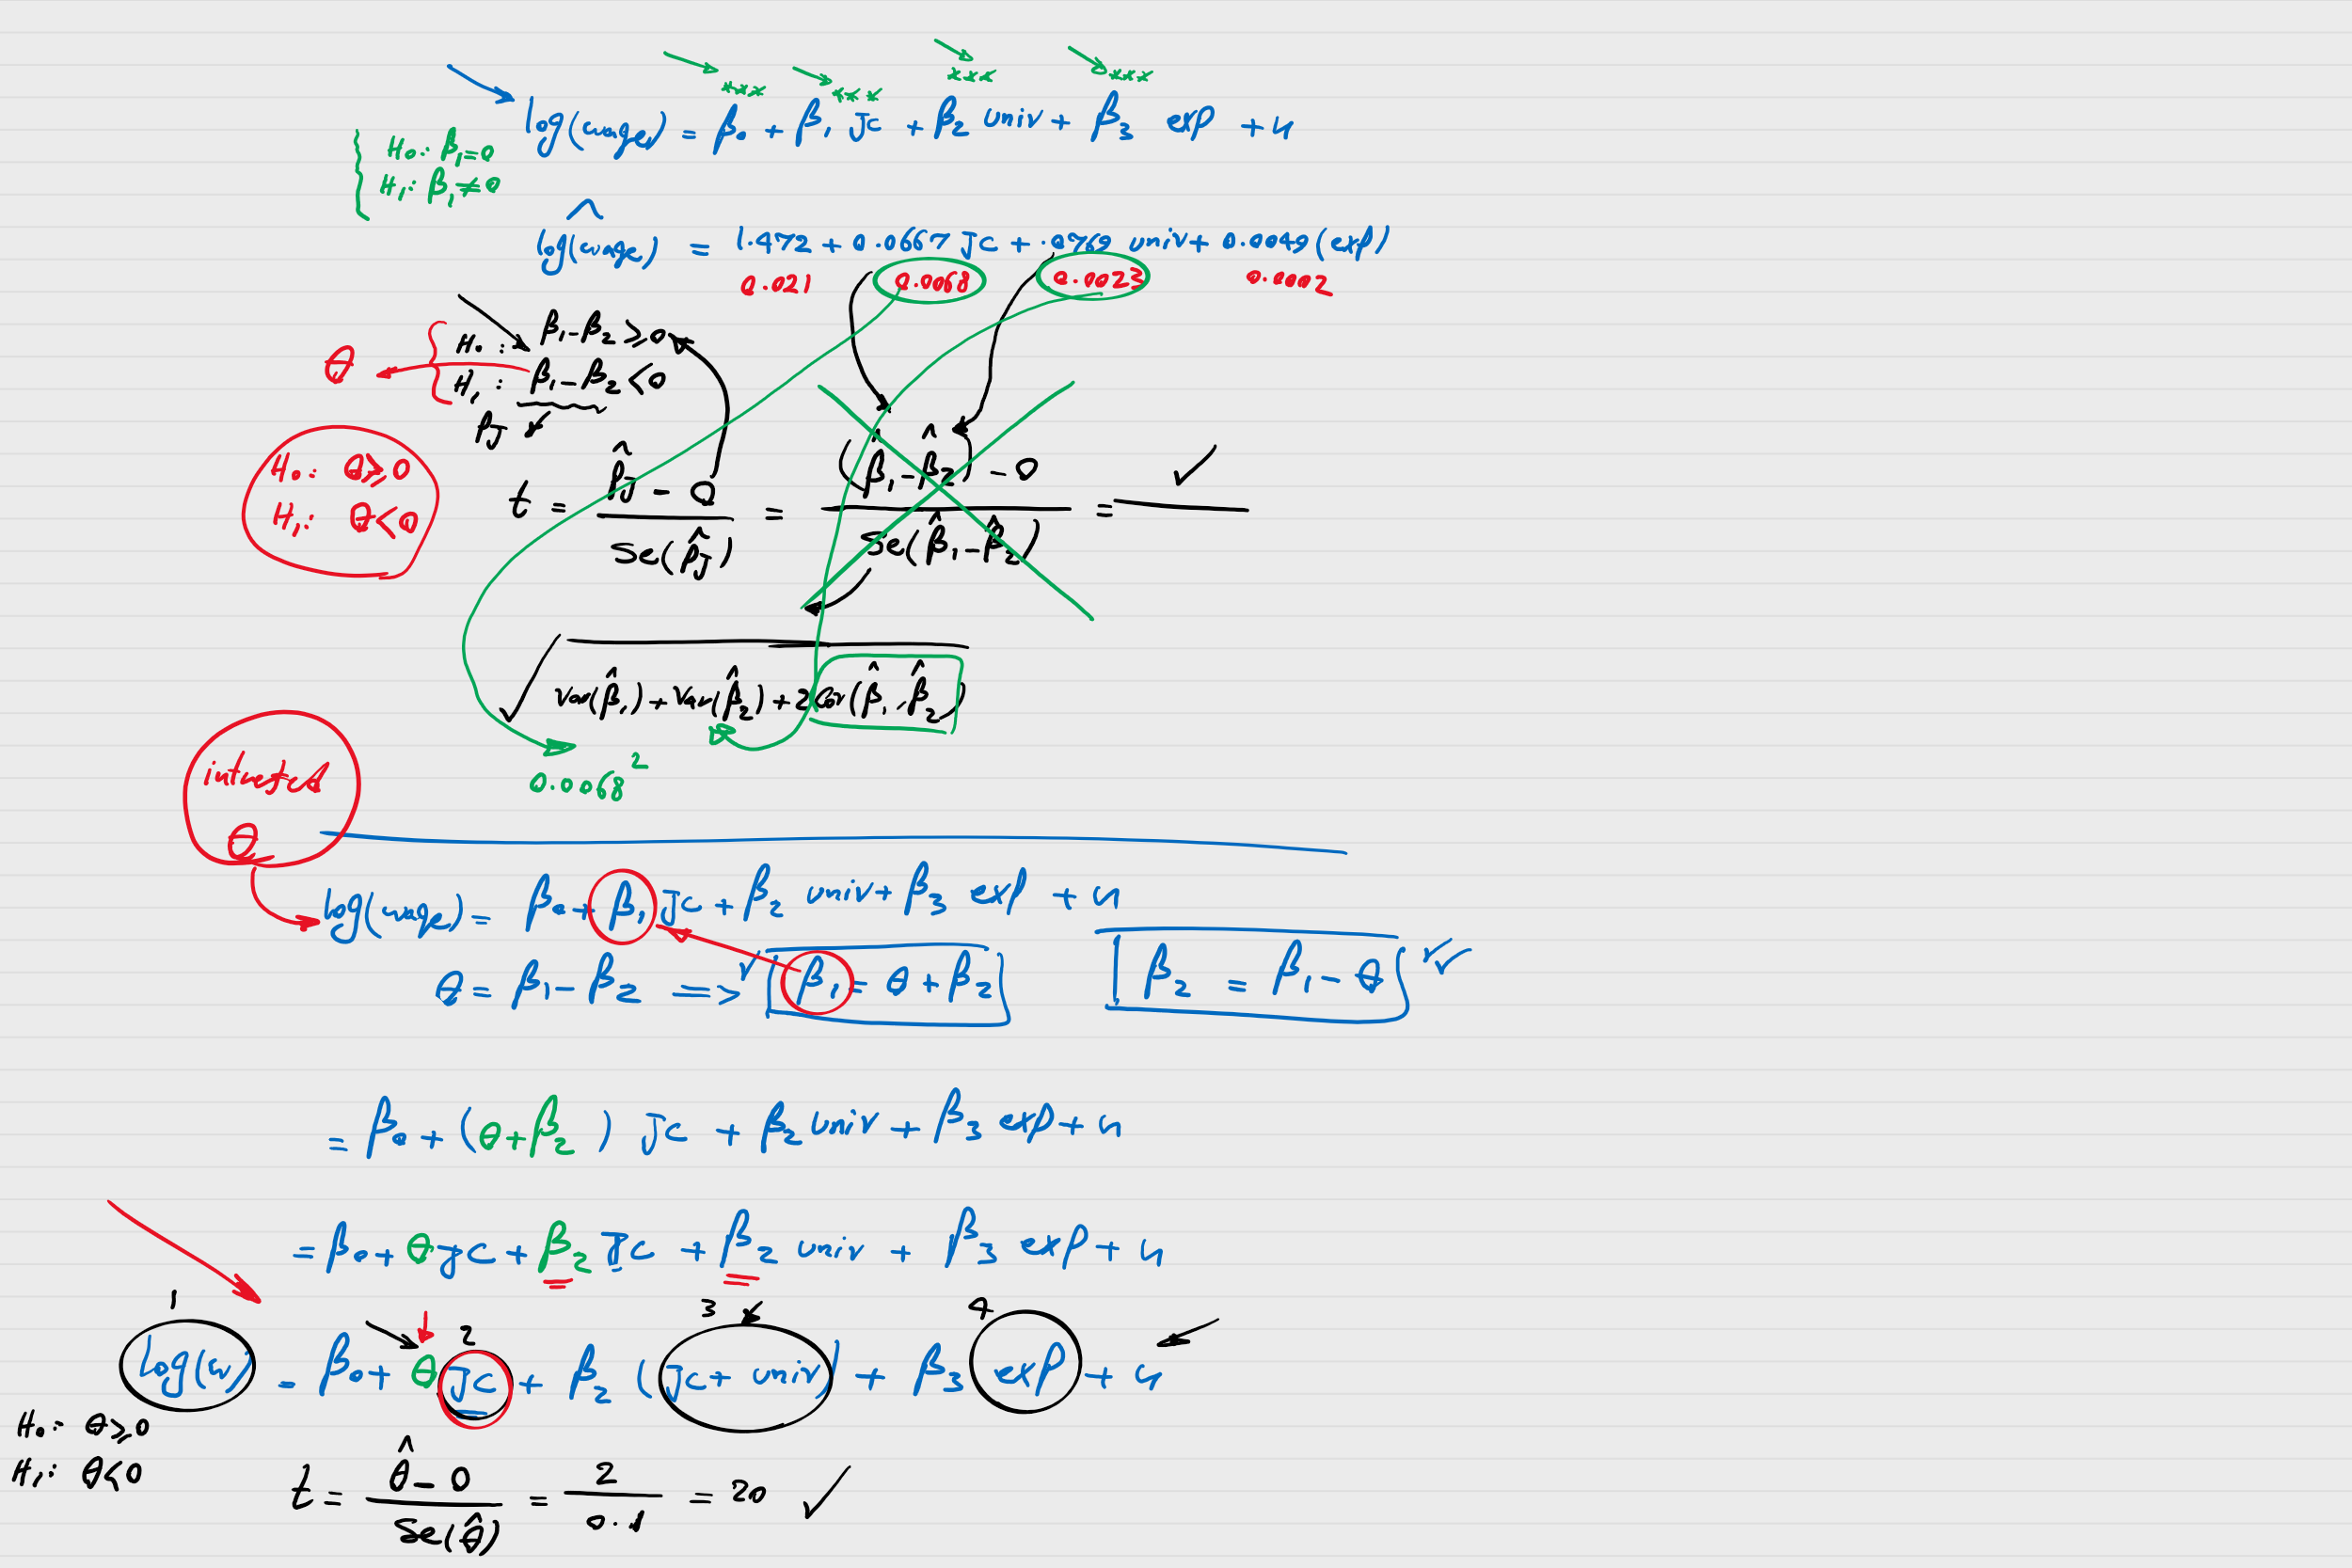 *** *** *** ***
log(wage) = β₀ + β₁ JC + β₂ univ + β₃ exp + u
H₀: β₁ = 0
H₁: β₁ ≠ 0
log(wage)^ = 1.472 + 0.0667 JC + .0769 univ + 0.0049 (exp)
0.021 0.0068 0.0023 0.0002
H₀: β₁ - β₂ ≥ 0
θ
H₁: β₁ - β₂ < 0
βj
H₀: θ ≥ 0
H₁: θ < 0
t = (β̂j - 0) / se(β̂j) = ((β̂₁ - β̂₂) - 0) / se(β̂₁ - β̂₂) = ✓
√(Var(β̂₁) + Var(β̂₂) + 2 Cov(β̂₁, β̂₂))
0.0068²
interested
θ
log(wage) = β₀ + β₁ JC + β₂ univ + β₃ exp + u
θ = β₁ - β₂ => ✓ β₁ = θ + β₂ β₂ = β₁ - θ ✓✓
= β₀ + (θ + β₂) JC + β₂ univ + β₃ exp + u
= β₀ + θ JC + β₂ JC + β₂ univ + β₃ exp + u
1 2 3 4
log(w) = β₀ + θ JC + β₂ (JC + univ) + β₃ exp + u
H₀: θ ≥ 0
H₁: θ < 0
t = (θ̂ - 0) / se(θ̂) = 2 / 0.1 = 20 ✓